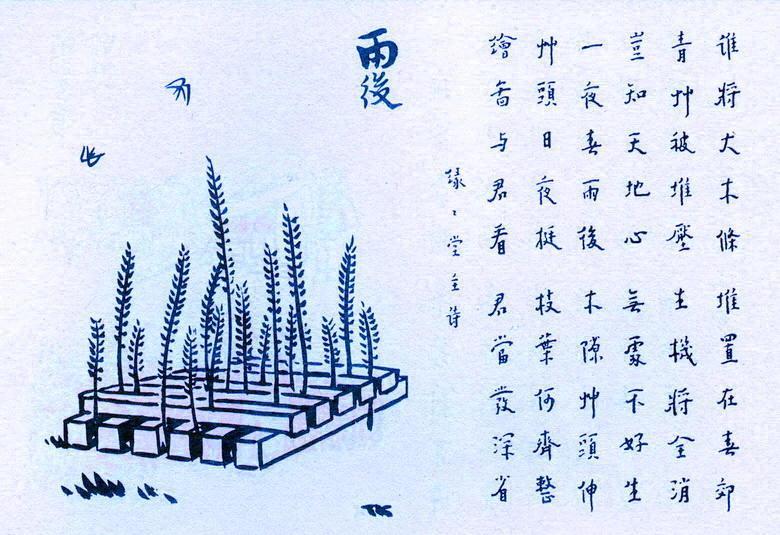 誰將大木條 堆置在春郊
青艸被堆壓 生機將全消
豈知天地心 無處不好生
一夜春雨後 木隙艸頭伸
艸頭日夜挺 枝葉何齊整
繪啚与君看 君當發深省
緣〻堂主詩
雨後
TK